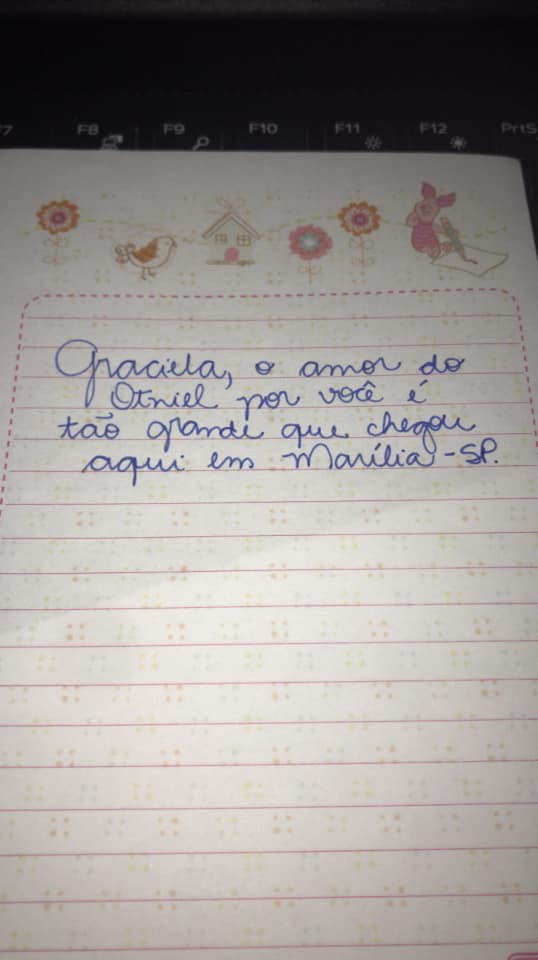 F7 F8 F9 F10 F11 F12 PrtS
Graciela, o amor do
Otniel por você é
tão grande que chegou
aqui em Marília-SP.